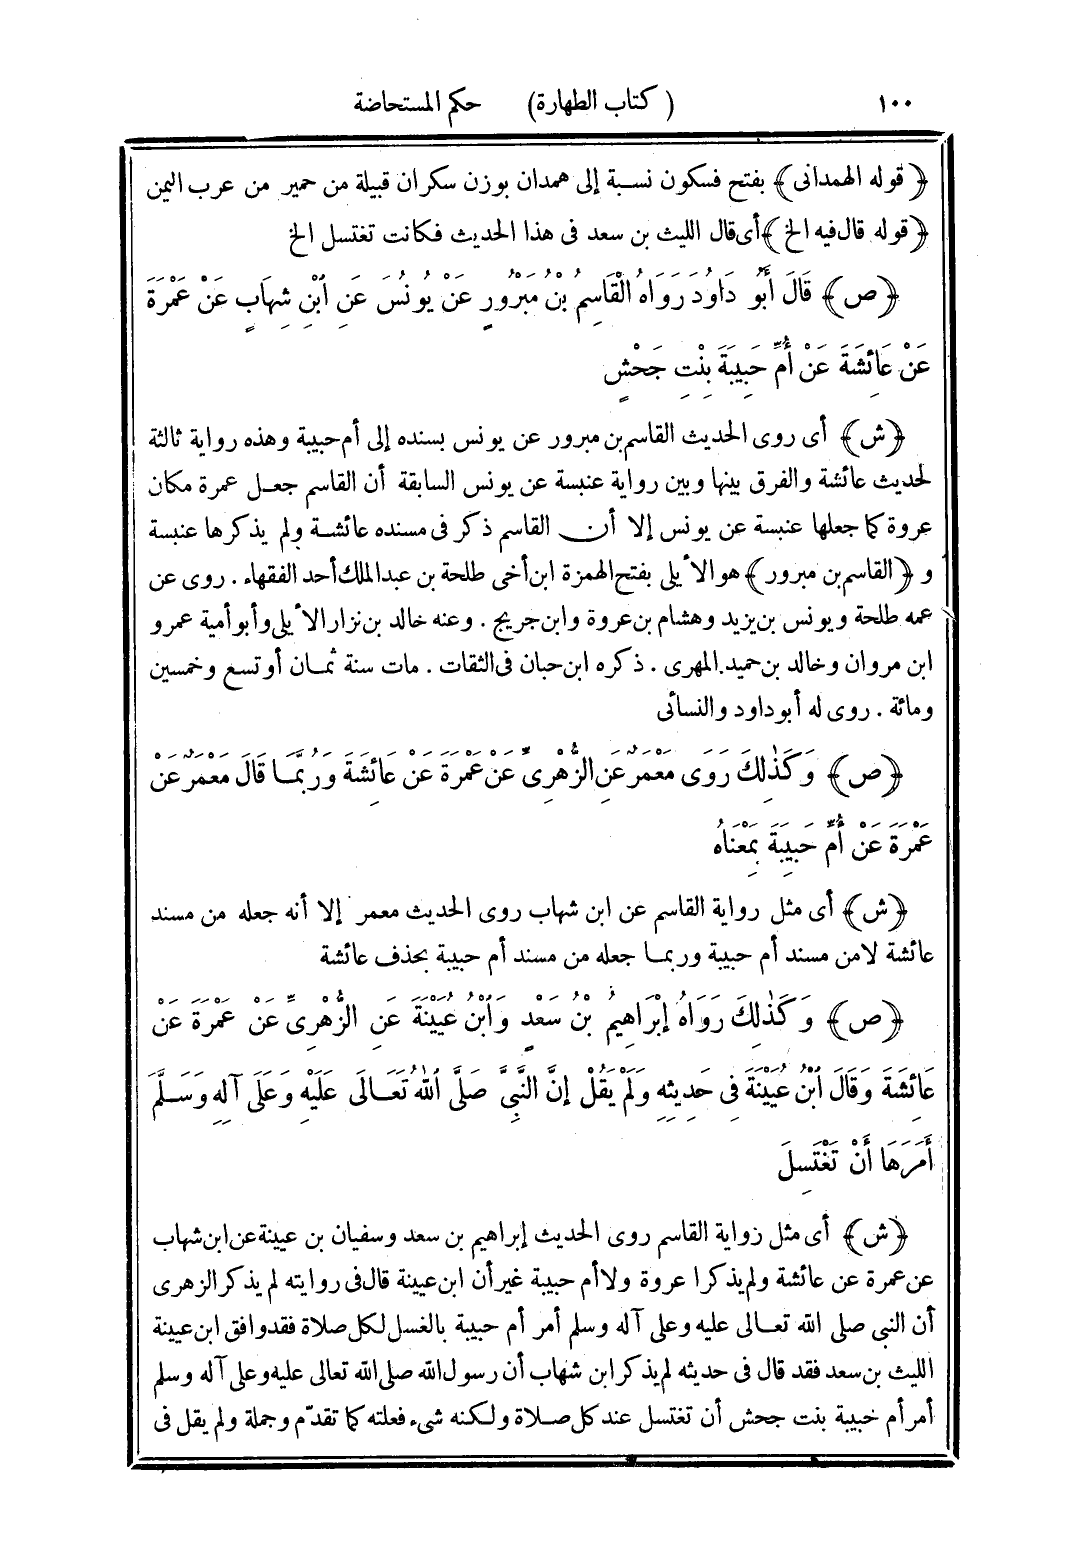 ١٠٠ (كتاب الطهارة) حكم المستحاضة
﴿قوله الهمدانى﴾ بفتح فسكون نسبة إلى همدان بوزن سكران قبيلة من حمير من عرب اليمن
﴿قوله قال فيه الخ﴾ أى قال الليث بن سعد فى هذا الحديث فكانت تغتسل الخ
﴿ص﴾ قَالَ أَبُو دَاوُدَ رَوَاهُ الْقَاسِمُ بْنُ مَبْرُورٍ عَنْ يُونُسَ عَنِ ابْنِ شِهَابٍ عَنْ عَمْرَةَ
عَنْ عَائِشَةَ عَنْ أُمِّ حَبِيبَةَ بِنْتِ جَحْشٍ
﴿ش﴾ أى روى الحديث القاسم بن مبرور عن يونس بسنده إلى أم حبيبة وهذه رواية ثالثة
لحديث عائشة والفرق بينها وبين رواية عنبسة عن يونس السابقة أن القاسم جعل عمرة مكان
عروة كما جعلها عنبسة عن يونس إلا أن القاسم ذكر فى مسنده عائشة ولم يذكرها عنبسة
و ﴿القاسم بن مبرور﴾ هو الأيلى بفتح الهمزة ابن أخى طلحة بن عبد الملك أحد الفقهاء . روى عن
عمه طلحة ويونس بن يزيد وهشام بن عروة وابن جريج . وعنه خالد بن نزار الأيلى وأبو أمية عمرو
ابن مروان وخالد بن حميد المهرى . ذكره ابن حبان فى الثقات . مات سنة ثمان أو تسع وخمسين
ومائة . روى له أبو داود والنسائى
﴿ص﴾ وَكَذٰلِكَ رَوَى مَعْمَرٌ عَنِ الزُّهْرِىِّ عَنْ عَمْرَةَ عَنْ عَائِشَةَ وَرُبَّمَا قَالَ مَعْمَرٌ عَنْ
عَمْرَةَ عَنْ أُمِّ حَبِيبَةَ بِمَعْنَاهُ
﴿ش﴾ أى مثل رواية القاسم عن ابن شهاب روى الحديث معمر إلا أنه جعله من مسند
عائشة لا من مسند أم حبيبة وربما جعله من مسند أم حبيبة بحذف عائشة
﴿ص﴾ وَكَذٰلِكَ رَوَاهُ إِبْرَاهِيمُ بْنُ سَعْدٍ وَابْنُ عُيَيْنَةَ عَنِ الزُّهْرِىِّ عَنْ عَمْرَةَ عَنْ
عَائِشَةَ وَقَالَ ابْنُ عُيَيْنَةَ فِى حَدِيثِهِ وَلَمْ يَقُلْ إِنَّ النَّبِىَّ صَلَّى اللهُ تَعَالَى عَلَيْهِ وَعَلَى آلِهِ وَسَلَّمَ
أَمَرَهَا أَنْ تَغْتَسِلَ
﴿ش﴾ أى مثل رواية القاسم روى الحديث إبراهيم بن سعد وسفيان بن عيينة عن ابن شهاب
عن عمرة عن عائشة ولم يذكرا عروة ولا أم حبيبة غير أن ابن عيينة قال فى روايته لم يذكر الزهرى
أن النبى صلى الله تعالى عليه وعلى آله وسلم أمر أم حبيبة بالغسل لكل صلاة فقد وافق ابن عيينة
الليث بن سعد فقد قال فى حديثه لم يذكر ابن شهاب أن رسول الله صلى الله تعالى عليه وعلى آله وسلم
أمر أم حبيبة بنت جحش أن تغتسل عند كل صلاة ولكنه شىء فعلته كما تقدّم وجملة ولم يقل فى